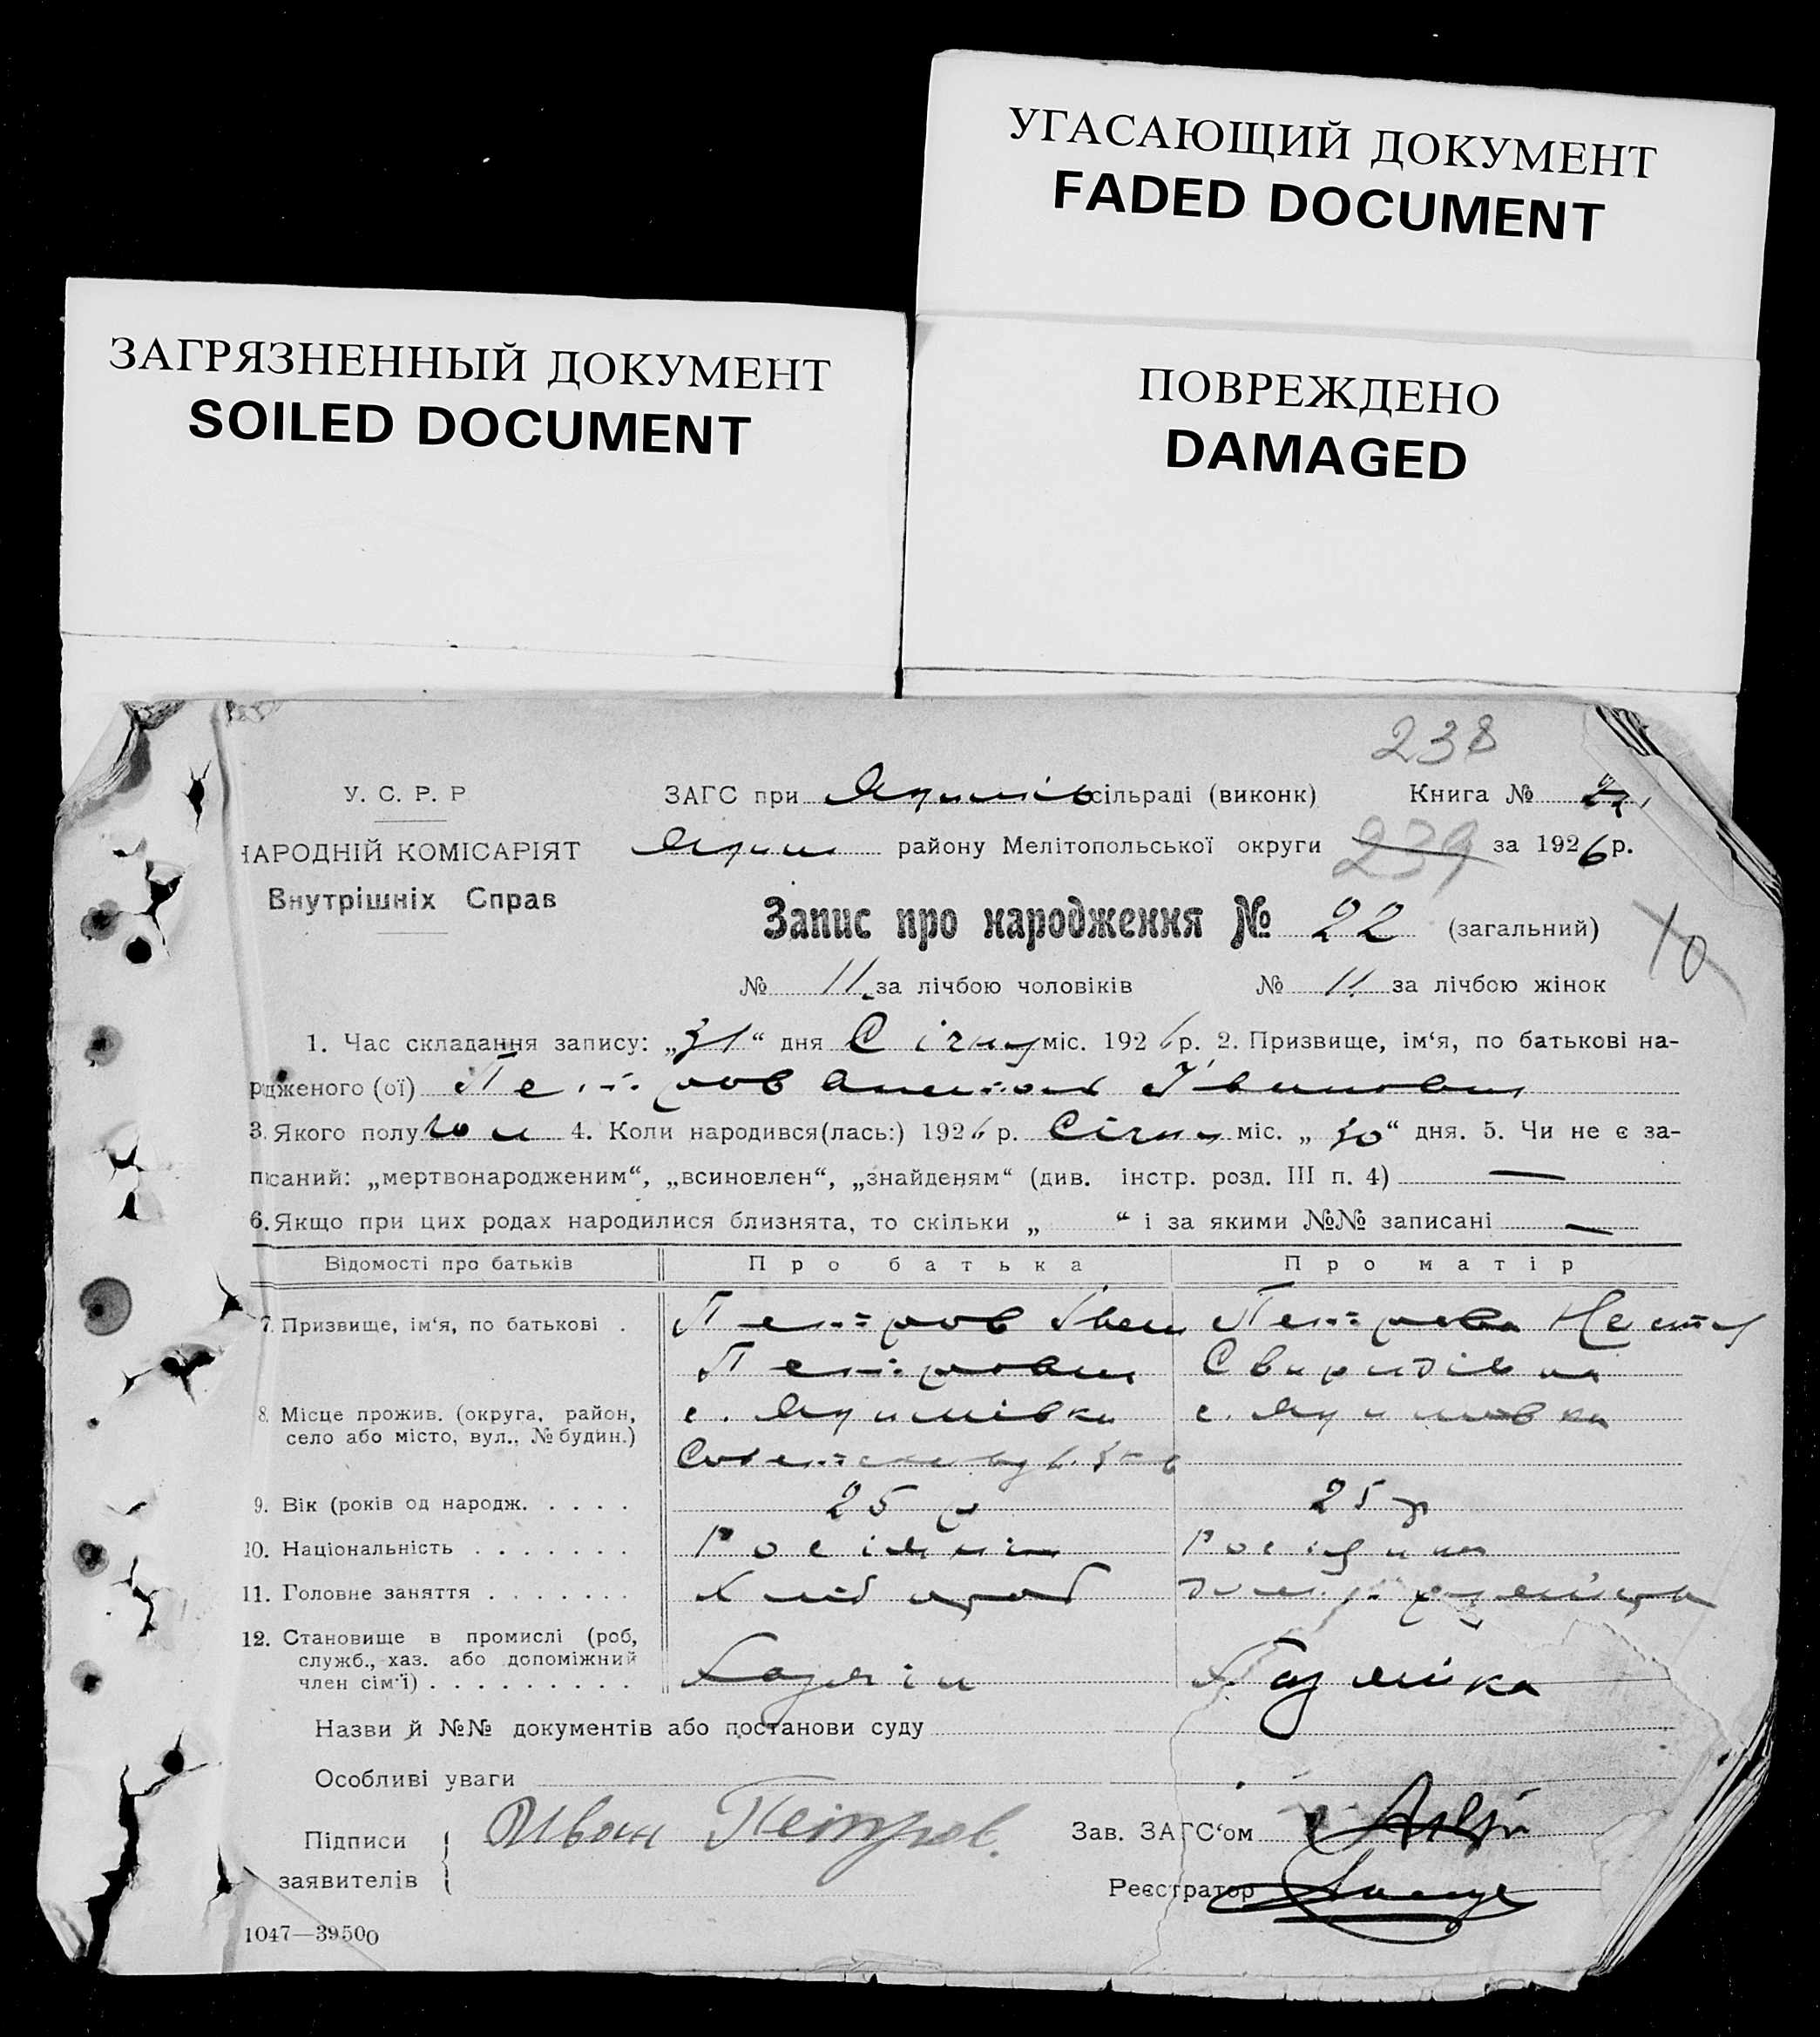 УГАСАЮЩИЙ ДОКУМЕНТ
FADED DOCUMENT
ЗАГРЯЗНЕННЫЙ ДОКУМЕНТ
SOILED DOCUMENT
ПОВРЕЖДЕНО
DAMAGED
238
У. С. Р. Р
ЗАГС при Якимів сільраді (виконк) Книга №
НАРОДНІЙ КОМІСАРІЯТ
Яким району Мелітопольської округи 239 за 1926 р.
Внутрішніх Справ
Запис про народження № 22 (загальний)
10
№ 11 за лічбою чоловіків № 11 за лічбою жінок
1. Час складання запису: „31“ дня Січня міс. 1926 р. 2. Призвище, ім‘я, по батькові на-
рдженого (ої) Петров Іванович
3. Якого полу 4. Коли народився(лась:) 1926 р. Січня міс. „30“ дня. 5. Чи не є за-
писаний: „мертвонародженим“, „всиновлен“, „знайденям“ (див. інстр. розд. III п. 4) —
6. Якщо при цих родах народилися близнята, то скільки „ “ і за якими №№ записані —
Відомості про батьків Про батька Про матір
7. Призвище, ім‘я, по батькові . Петров Іван Петрова
Петрович Свиридівна
8. Місце прожив. (округа, район, с. Якимівка с. Якимовка
село або місто, вул., № будин.)
9. Вік (років од народж. . . . . 25 р 25 р
10. Національність . . . . . . . Росіянін Росіянка
11. Головне заняття . . . . . . . Хлібороб
12. Становище в промислі (роб,
служб., хаз. або допоміжний
член сім‘ї) . . . . . . . . . Хазяїн Хазяйка
Назви й №№ документів або постанови суду
Особливі уваги
Підписи
заявителів
Иван Петров.
Зав. ЗАГС‘ом
Реєстратор
1047—39500